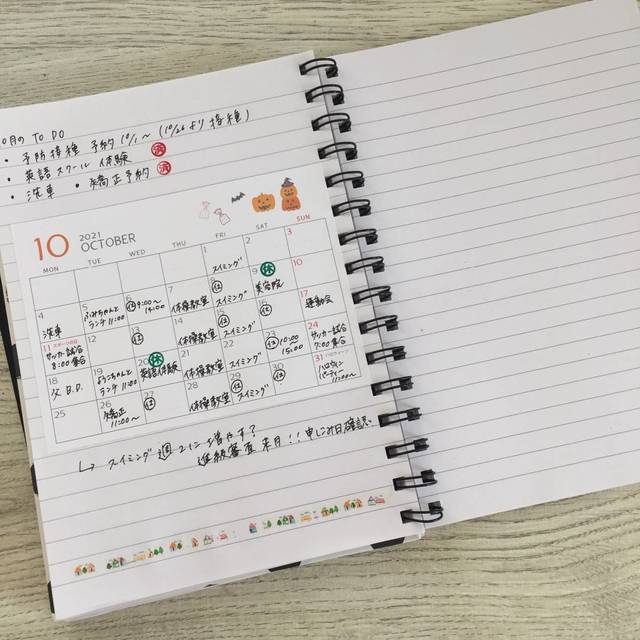 10月の TO DO
・ 予防接種 予約 10/1〜 (10/26より接種)
・ 英語スクール 体験 済
・ 洗車 ・矯正予約 済
10 2021 OCTOBER
MON TUE WED THU FRI SAT SUN
1 2 3
スイミング
4 5 6 7 8 9 10
洗車 ランチ 11:00 12 9:00〜14:00 体操教室 12 スイミング 休 美容院
11 12 13 14 15 16 17
スポーツの日 サッカー試合 8:00集合 12 体操教室 12 スイミング 12 運動会
18 19 20 21 22 23 24
父 B.D. ランチ 11:00 休 英語体験 体操教室 スイミング 12 10:00 15:00 サッカー試合 7:00集合
25 26 27 28 29 30 31
矯正 11:00〜 12 体操教室 12 スイミング 12 ハロウィン パーティー 11:00〜
↳ スイミング 週2に増やす?
進級審査 来月!! 申し込み日確認。